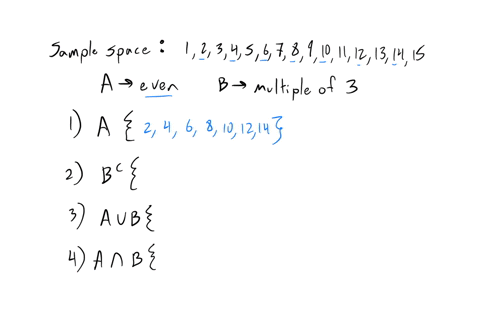 Sample space: 1, 2, 3, 4, 5, 6, 7, 8, 9, 10, 11, 12, 13, 14, 15
A → even B → multiple of 3
1) A { 2, 4, 6, 8, 10, 12, 14}
2) Bᶜ {
3) A ∪ B {
4) A ∩ B {